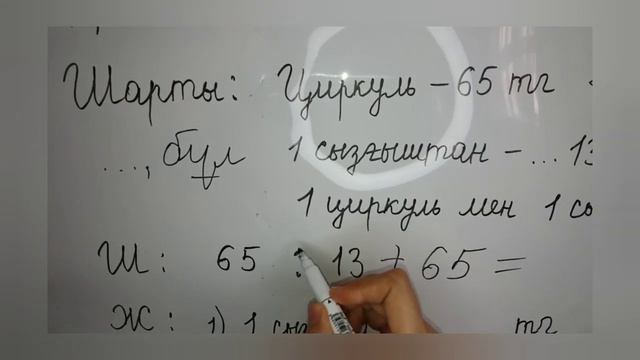 Шарты: Циркуль – 65 тг
..., бұл 1 сызғыштан – ... 13
1 циркуль мен 1 сы
Ш: 65 : 13 + 65 =
Ж: 1) 1 сыз тг